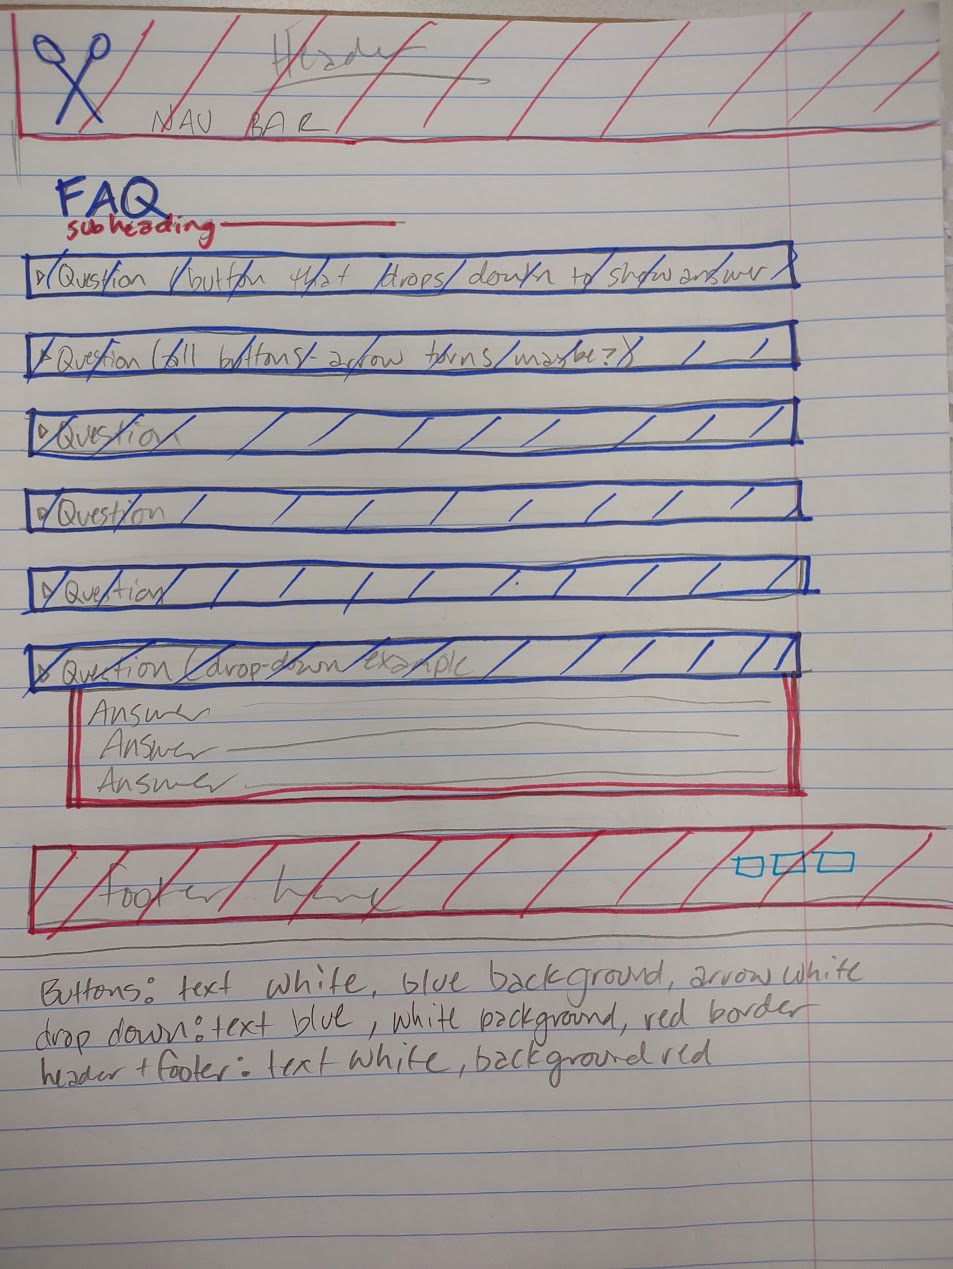 Header
NAV BAR
FAQ
subheading
Question (button that drops down to show answer
Question (all buttons - arrow turns maybe?)
Question
Question
Question
Question (drop-down example
Answer
Answer
Answer
footer here
Buttons: text white, blue background, arrow white
drop down: text blue, white background, red border
header + footer: text white, background red